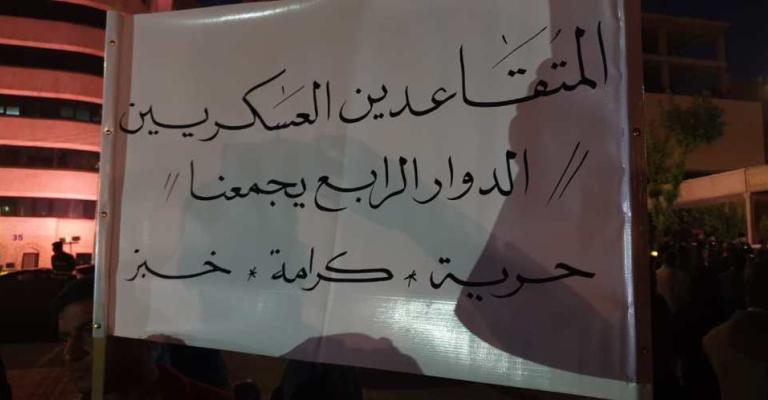 المتقاعدين العسكريين
// الدوار الرابع يجمعنا //
حرية * كرامة * خبز
35